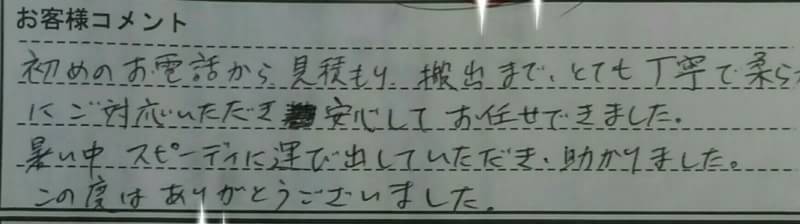 お客様コメント
初めのお電話から見積もり搬出まで、とても丁寧で柔らか
にご対応いただき安心してお任せできました。
暑い中スピーディに運び出していただき、助かりました。
この度はありがとうございました。